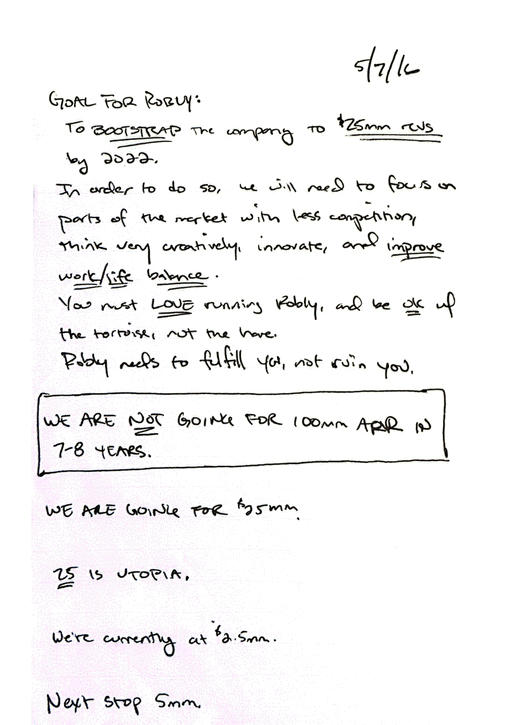 5/7/16
GOAL FOR ROBLY:
To BOOTSTRAP the company to $25mm revs
by 2022.
In order to do so, we will need to focus on
parts of the market with less competition,
think very creatively, innovate, and improve
work/life balance.
You must LOVE running Robly, and be ok w/
the tortoise, not the hare.
Robly needs to fulfill you, not ruin you.
WE ARE NOT GOING FOR 100mm ARR IN
7-8 YEARS.
WE ARE GOING FOR $25mm.
25 IS UTOPIA.
We're currently at $2.5mm.
Next stop 5mm.